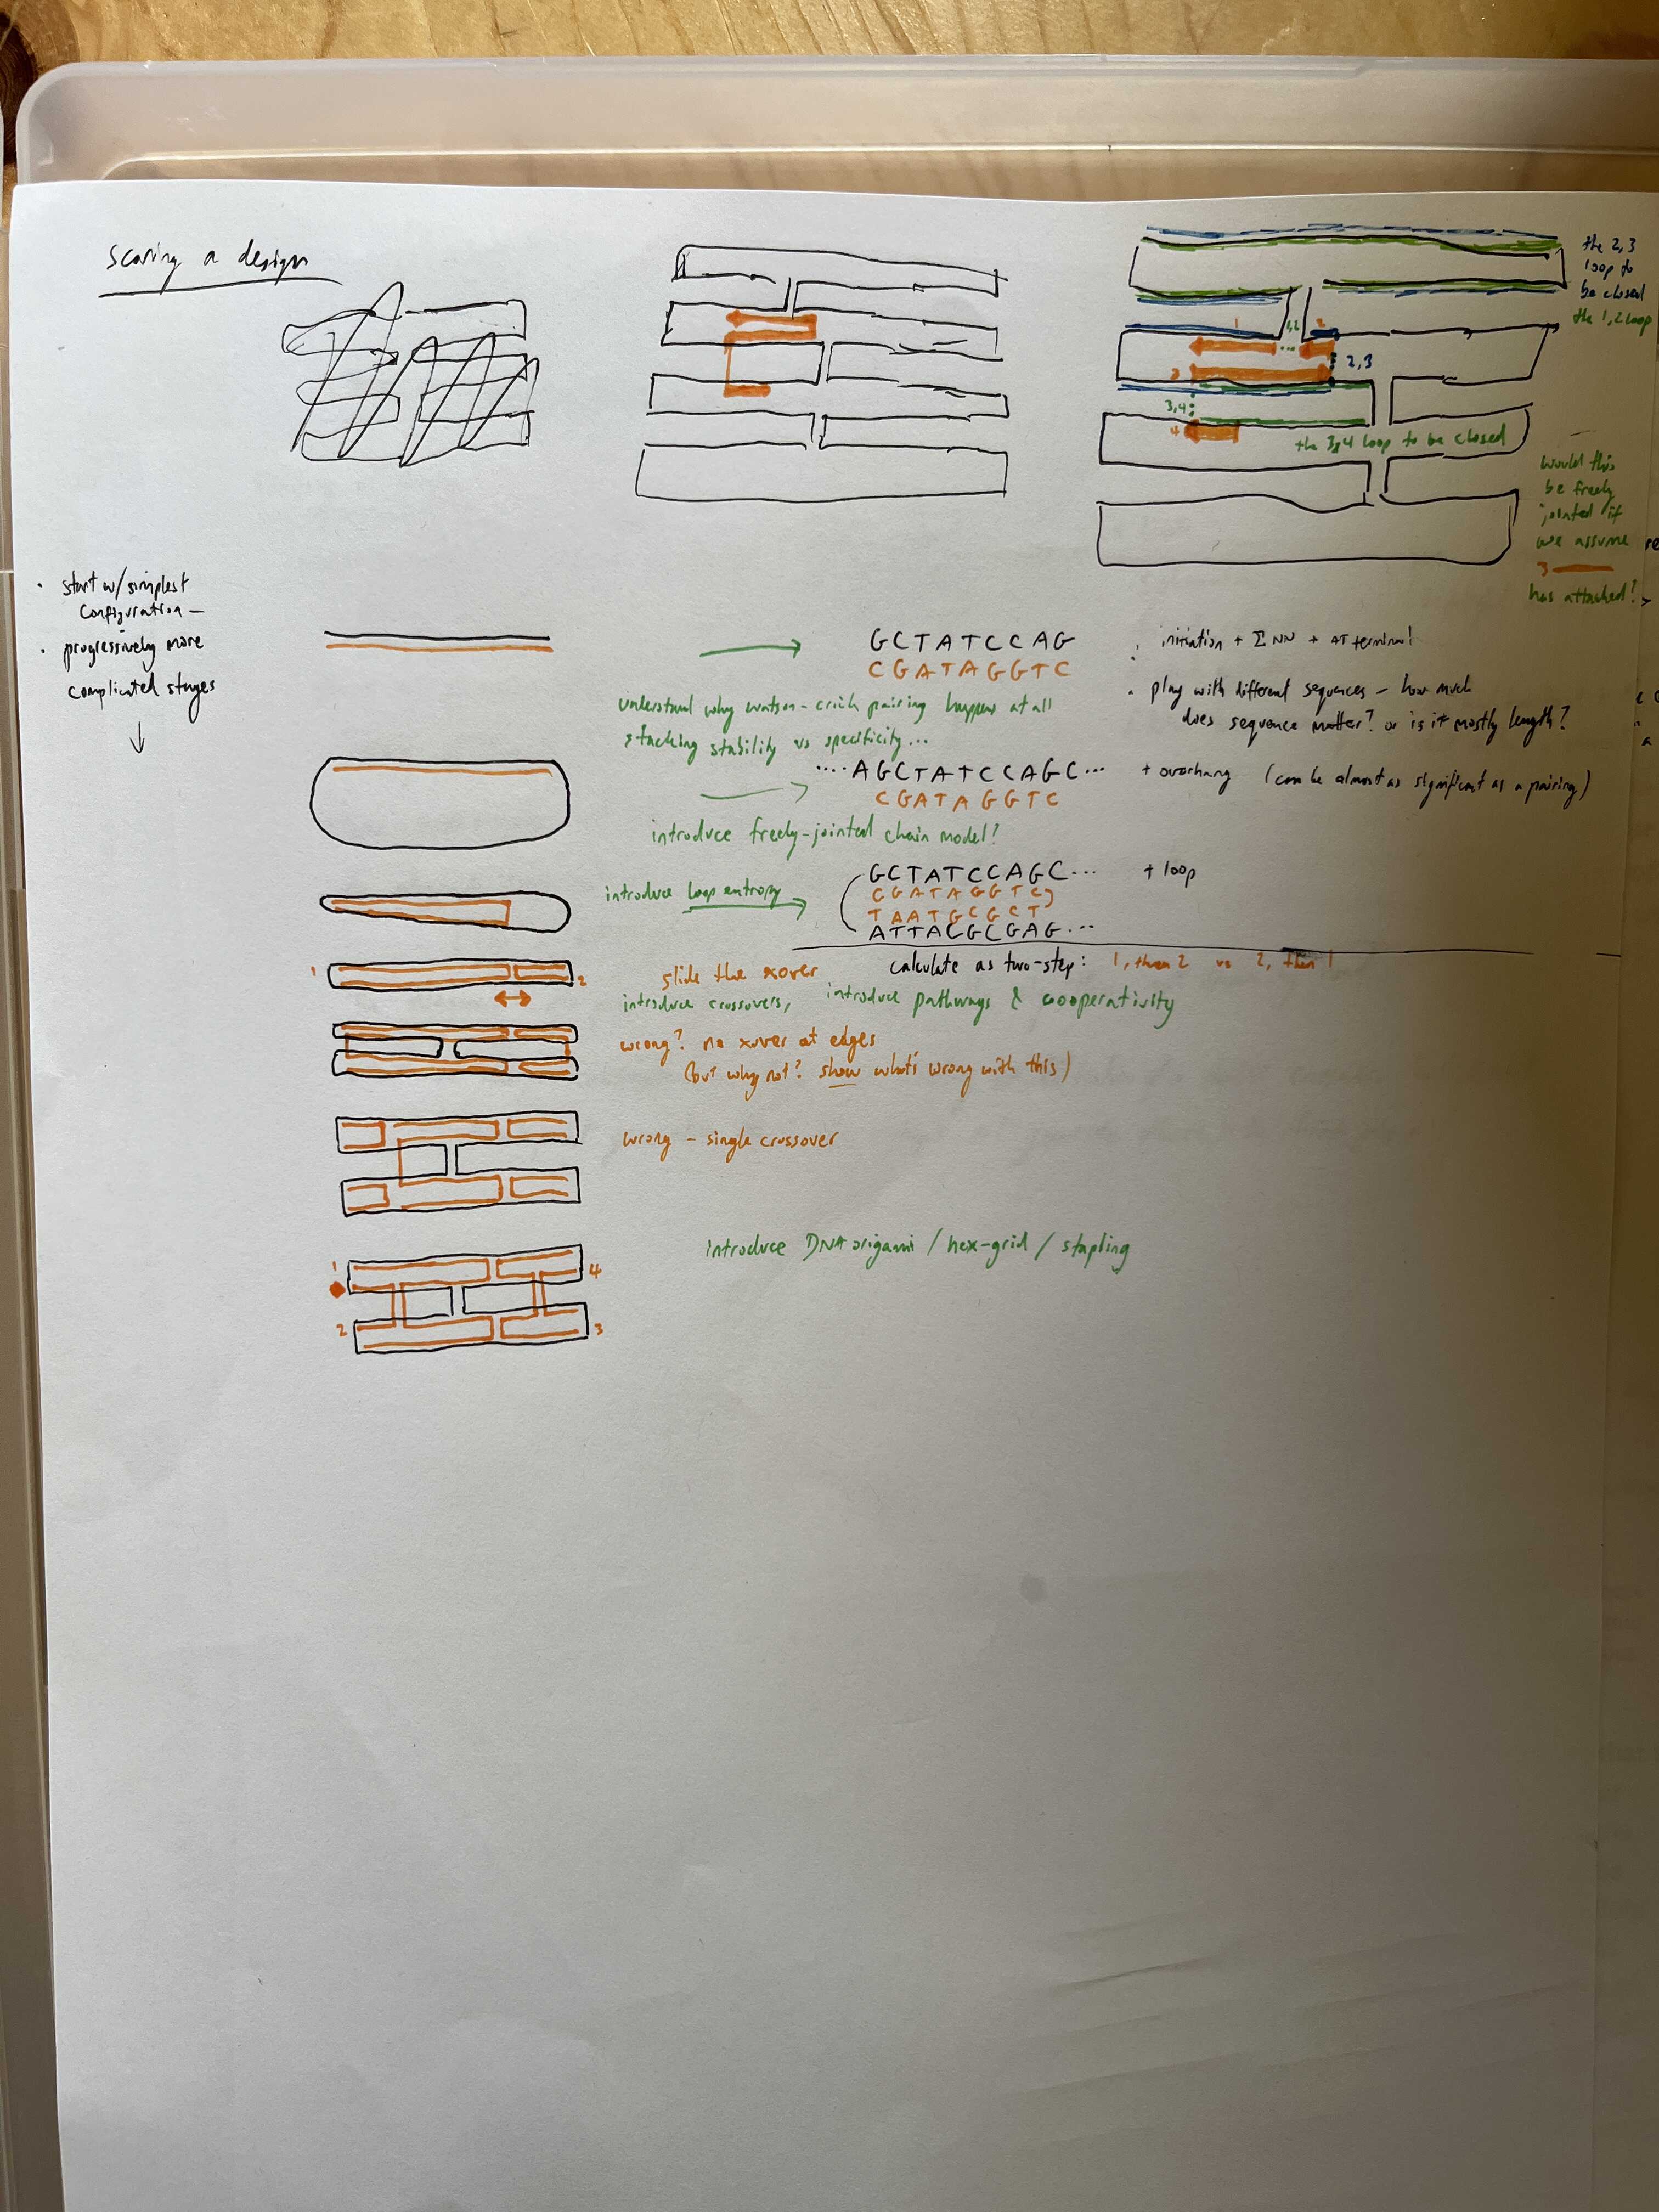 scoring a design
the 2,3
loop to
be closed
the 1,2 loop
1
1,2
2
...
3
2,3
3,4
4
the 3,4 loop to be closed
would this
be freely
jointed if
we assume
3
has attached?
• start w/ simplest
configuration –
• progressively more
complicated stages
GCTATCCAG
CGATAGGTC
• initiation + Σ NN + AT terminal
• play with different sequences – how much
does sequence matter? or is it mostly length?
understand why watson-crick pairing happens at all
stacking stability vs specificity...
....AGCTATCCAGC...
CGATAGGTC
+ overhang (can be almost as significant as a pairing)
introduce freely-jointed chain model?
introduce loop entropy
GCTATCCAGC...
CGATAGGTC
TAATGCGCT
ATTACGCGAG...
+ loop
1
2
slide the xover
calculate as two-step: 1, then 2 vs 2, then 1
introduce crossovers, introduce pathways & cooperativity
wrong? no xover at edges
(but why not? show what's wrong with this)
wrong – single crossover
introduce DNA origami / hex-grid / stapling
1
4
2
3